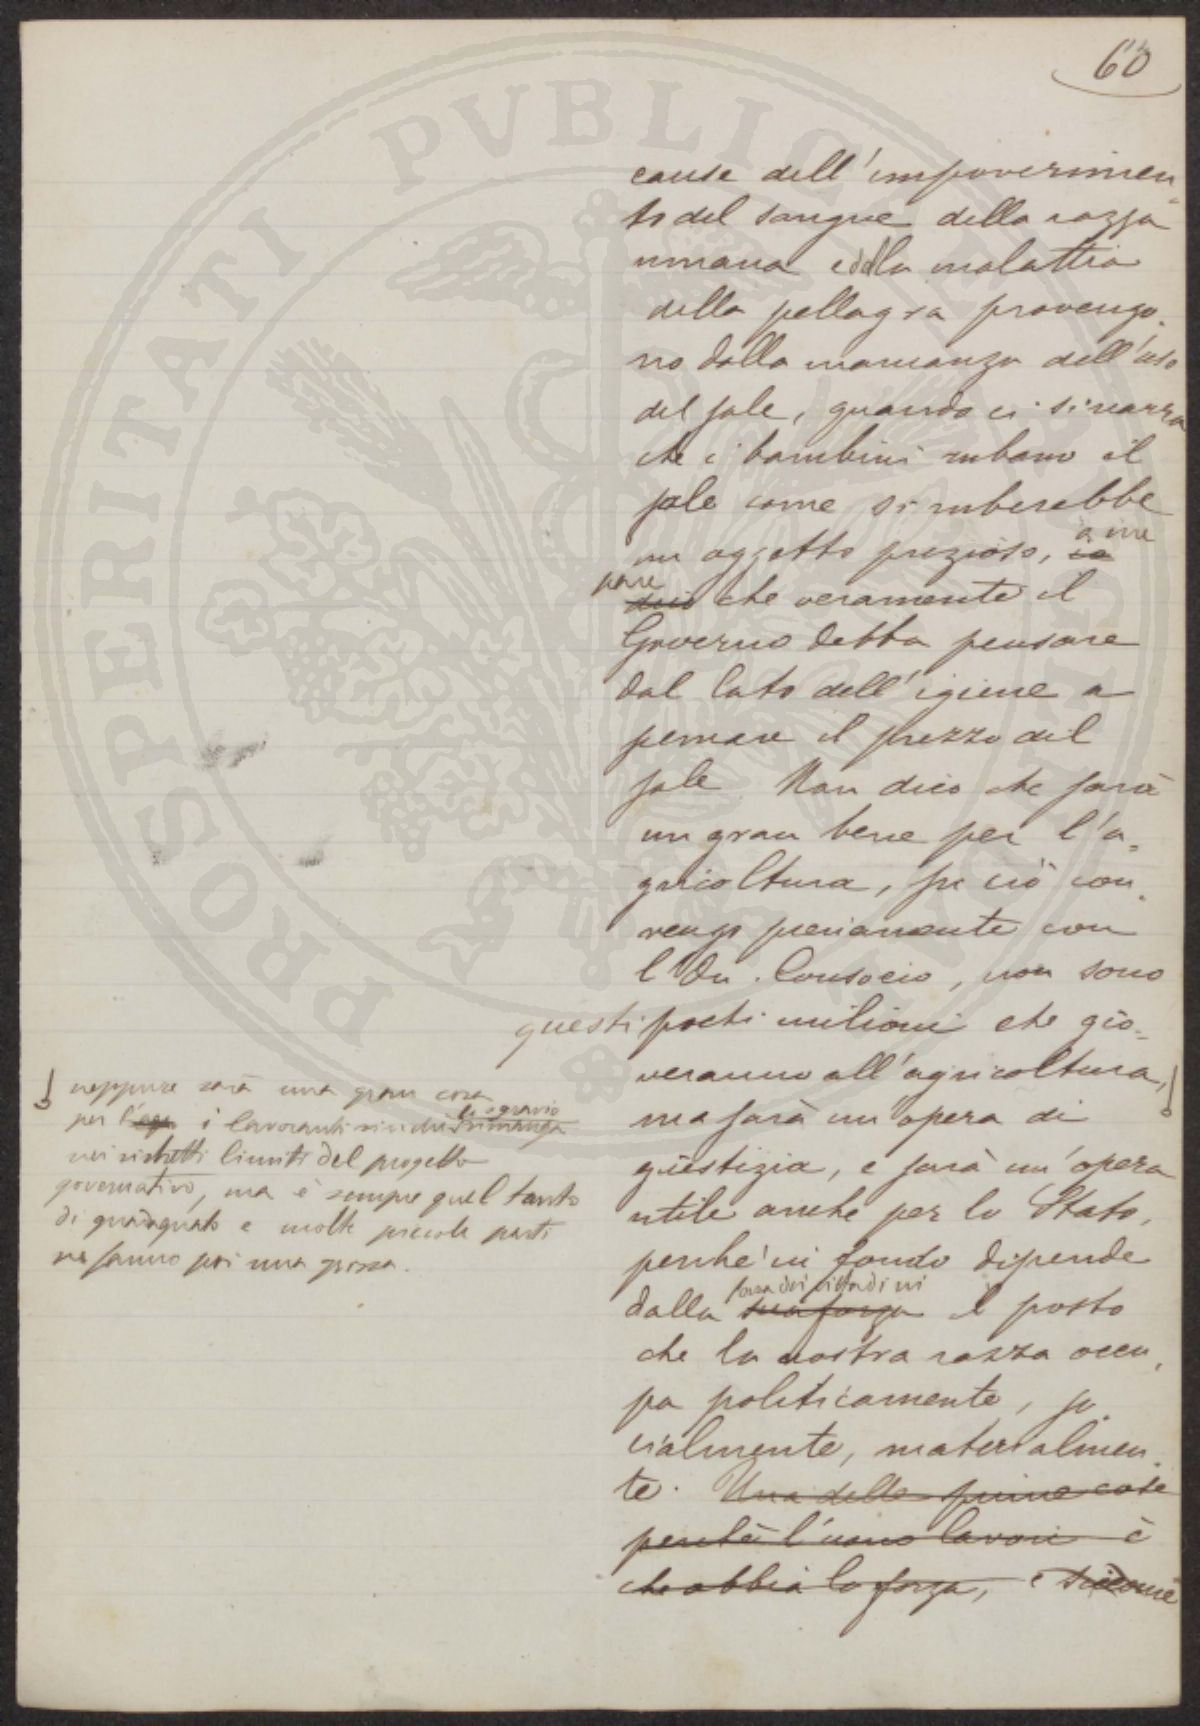 60
cause dell'impoverimen=
to del sangue della razza
umana e della malattia
della pellagra provengo=
no dalla mancanza dell'uso
del sale, quando ci si narra
che i bambini rubano il
sale come si ruberebbe
un oggetto prezioso, a me
pare dico che veramente il
Governo debba pensare
dal lato dell'igiene a
scemare il prezzo del
sale. Non dico che sarà
un gran bene per l'a=
gricoltura, su ciò con=
vengo pienamente con
l'On. Consocio, non sono
questi pochi milioni che gio=
veranno all'agricoltura,
ma sarà un'opera di
giustizia, e sarà un'opera
utile anche per lo Stato,
perché in fondo dipende
dalla forza dei cittadini sua forza il posto
che la nostra razza occu=
pa politicamente, so=
cialmente, materialmen=
te. Una delle prime cose
perché l'uomo lavori è
che abbia la forza, e siccome
neppure sarà una gran cosa
per i lavoranti lo sgravio rimanga
nei ristretti limiti del progetto
governativo, ma è sempre quel tanto
di guadagnato e molte piccole parti
ne fanno poi una grossa.
PROSPERITATI PVBLICAE